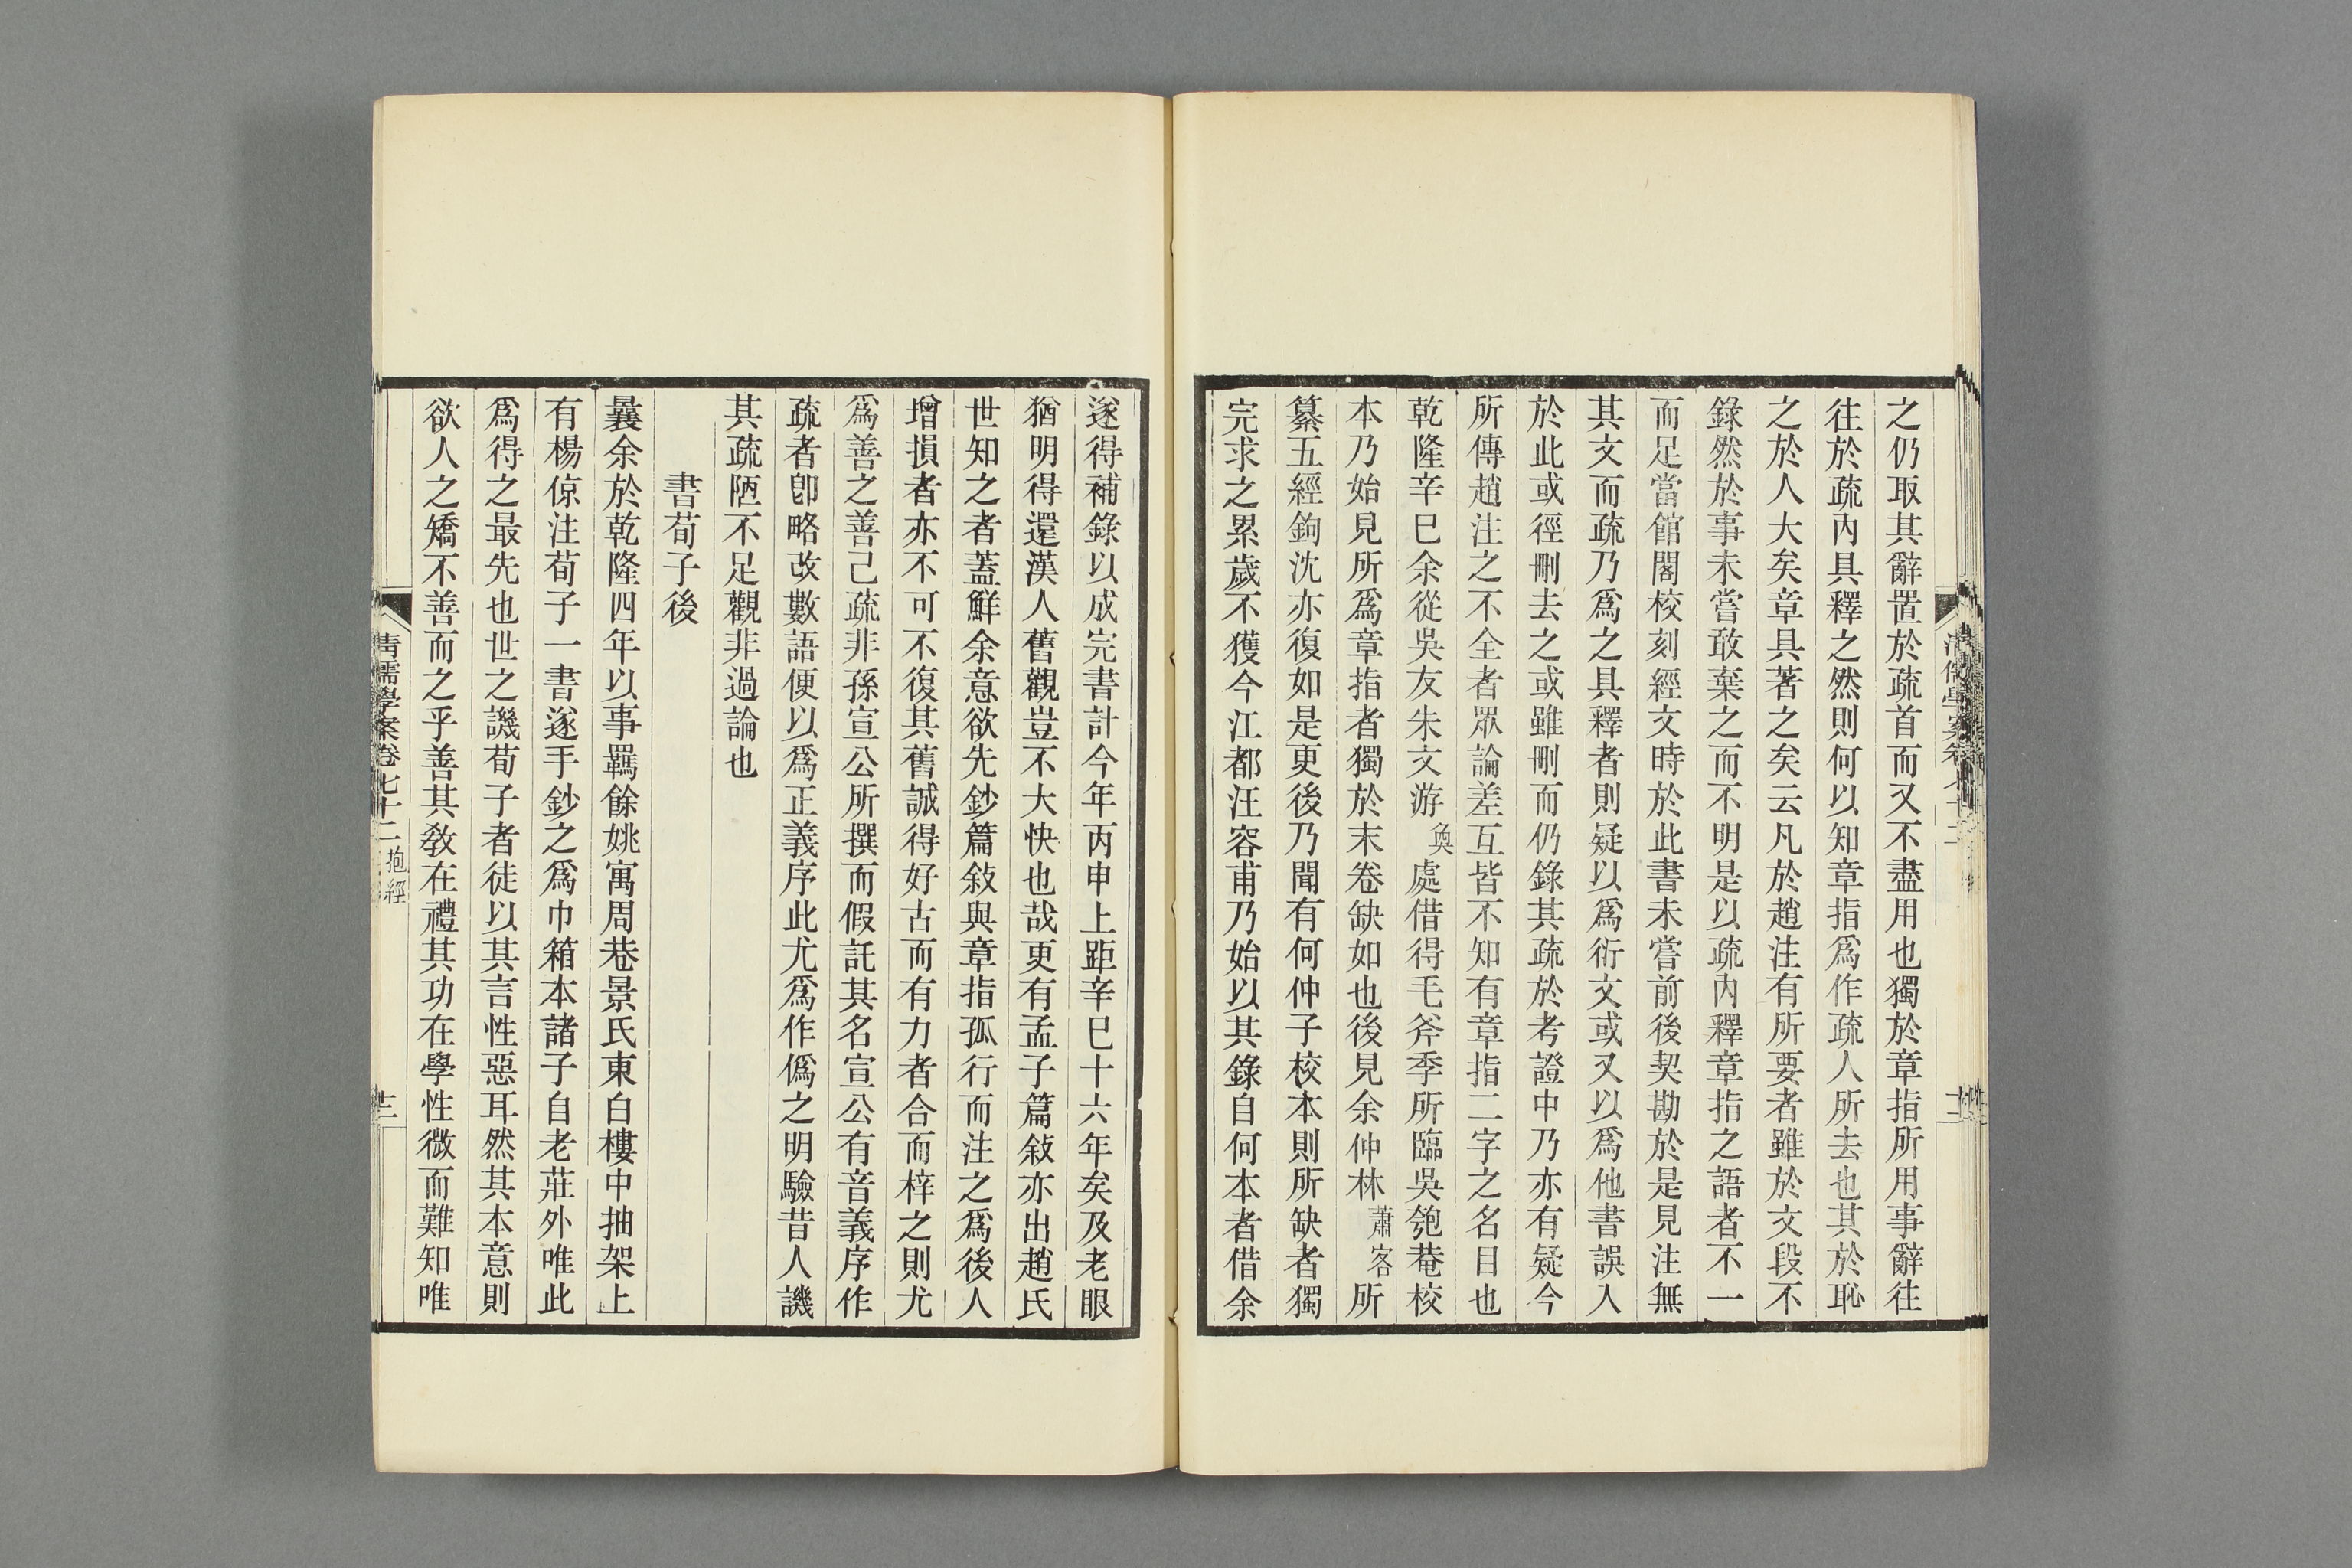 之仍取其辭置於疏首而又不盡用也獨於章指所用事辭往
往於疏內具釋之然則何以知章指爲作疏人所去也其於恥
之於人大矣章具著之矣云凡於趙注有所要者雖於文段不
錄然於事未嘗敢棄之而不明是以疏內釋章指之語者不一
而足當館閣校刻經文時於此書未嘗前後契勘於是見注無
其文而疏乃爲之具釋者則疑以爲衍文或又以爲他書誤入
於此或徑刪去之或雖刪而仍錄其疏於考證中乃亦有疑今
所傳趙注之不全者眾論差互皆不知有章指二字之名目也
乾隆辛巳余從吳友朱文游奐處借得毛斧季所臨吳匏菴校
本乃始見所爲章指者獨於末卷缺如也後見余仲林蕭客所
纂五經鉤沈亦復如是更後乃聞有何仲子校本則所缺者獨
完求之累歲不獲今江都汪容甫乃始以其錄自何本者借余
遂得補錄以成完書計今年丙申上距辛巳十六年矣及老眼
猶明得還漢人舊觀豈不大快也哉更有孟子篇敍亦出趙氏
世知之者蓋鮮余意欲先鈔篇敍與章指孤行而注之爲後人
增損者亦不可不復其舊誠得好古而有力者合而梓之則尤
爲善之善己疏非孫宣公所撰而假託其名宣公有音義序作
疏者卽略改數語便以爲正義序此尤爲作僞之明驗昔人譏
其疏陋不足觀非過論也
書荀子後
曩余於乾隆四年以事羈餘姚寓周巷景氏東白樓中抽架上
有楊倞注荀子一書遂手鈔之爲巾箱本諸子自老莊外唯此
爲得之最先也世之譏荀子者徒以其言性惡耳然其本意則
欲人之矯不善而之乎善其教在禮其功在學性微而難知唯
清儒學案卷七十二 抱經